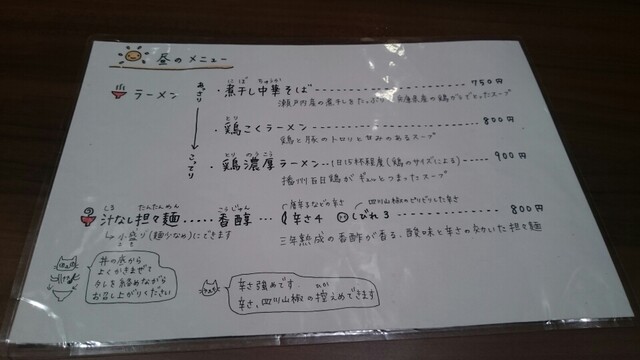 昼のメニュー
ラーメン
あっさり
こってり
にぼ ちゅうか
・煮干し中華そば 750円
瀬戸内産の煮干しをたっぷり 兵庫県産の鶏がらでとったスープ
とり
・鶏こくラーメン 800円
鶏と豚のトロリと甘みのあるスープ
とり のうこう
・鶏濃厚ラーメン 1日15杯程度(鶏のサイズによる) 900円
播州百日鶏がギューっとつまったスープ
唐辛子などの辛さ 四川山椒のピリピリした辛さ
しる たんたんめん こうじゅん
汁なし担々麺.....香醇… 辛さ4 しびれ3 800円
↳小盛り(麺少なめ)にできます
三年熟成の香酢が香る、酸味と辛さの効いた担々麺
丼の底から
よくかきまぜて
タレを絡めながら
お召し上がりください
辛さ強めです
辛さ、四川山椒の控えめできます